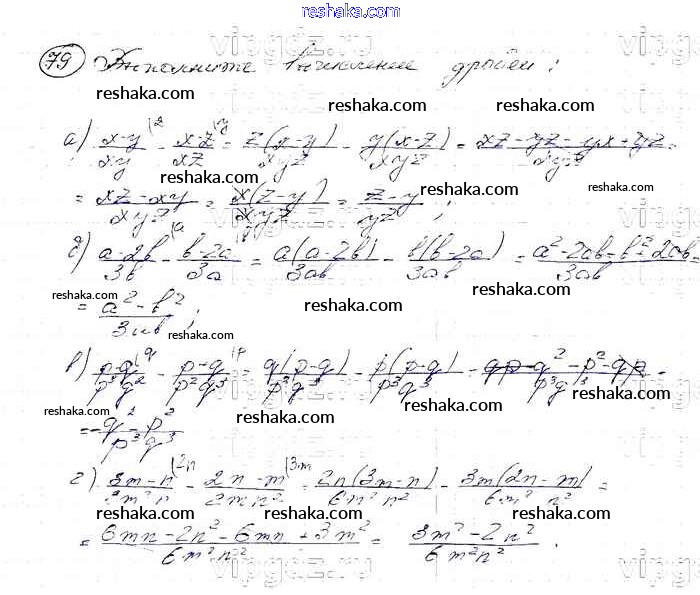 reshaka.com
79 Выполните вычисление дробей:
reshaka.com reshaka.com reshaka.com
а) x-y/xy |z - x-z/xz |y = z(x-y)/xyz - y(x-z)/xyz = xz-yz-yx+yz/xyz =
reshaka.com reshaka.com reshaka.com
= xz-xy/xyz = x(z-y)/xyz = z-y/yz ;
reshaka.com
б) a-2b/3b |a - b-2a/3a |b = a(a-2b)/3ab - b(b-2a)/3ab = a²-2ab-b²+2ab/3ab =
reshaka.com reshaka.com reshaka.com
= a²-b²/3ab ;
reshaka.com
в) p-q/p³q² |q - p-q/p²q³ |p = q(p-q)/p³q³ - p(p-q)/p³q³ = qp-q²-p²-qp/p³q³ =
reshaka.com reshaka.com reshaka.com
= -q²-p²/p³q³
reshaka.com
г) 3m-n/3m²n |2n - 2n-m/2mn² |3m = 2n(3m-n)/6m²n² - 3m(2n-m)/6m²n² =
reshaka.com reshaka.com reshaka.com
= 6mn-2n²-6mn+3m²/6m²n² = 3m²-2n²/6m²n² .
reshaka.com reshaka.com reshaka.com